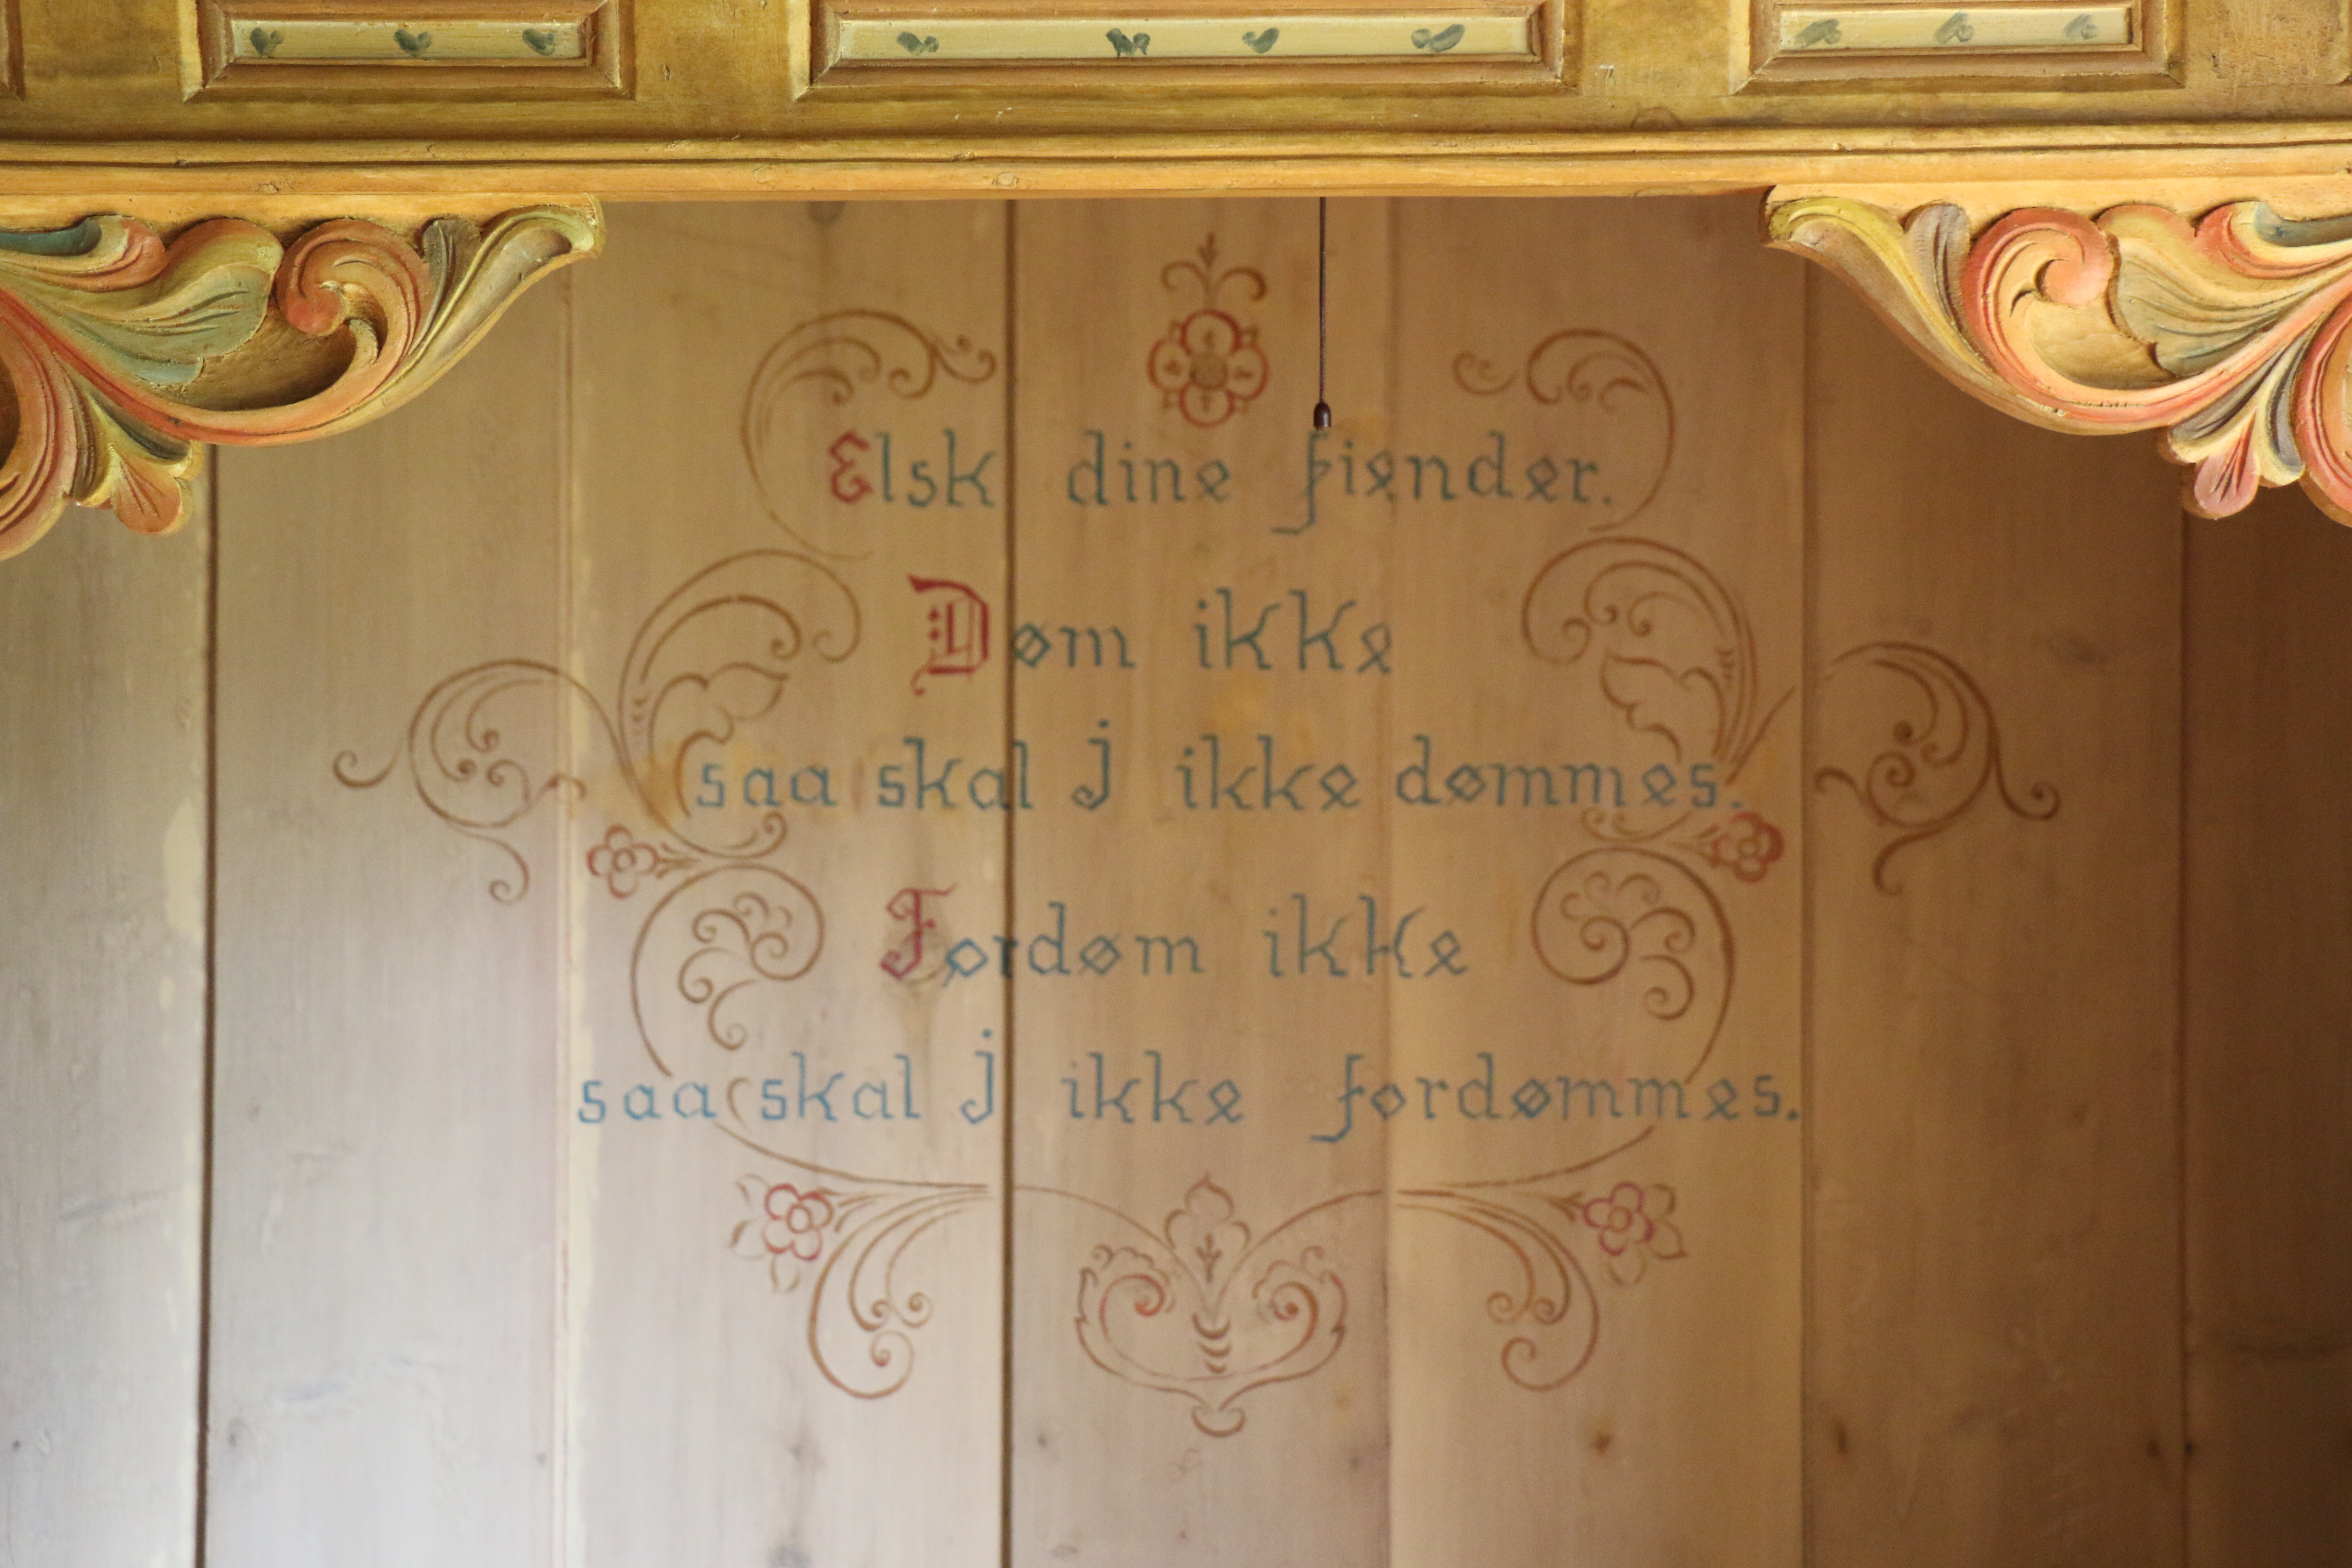 Elsk dine fiender.
Døm ikke
saa skal J ikke dømmes.
Fordøm ikke
saa skal J ikke fordømmes.